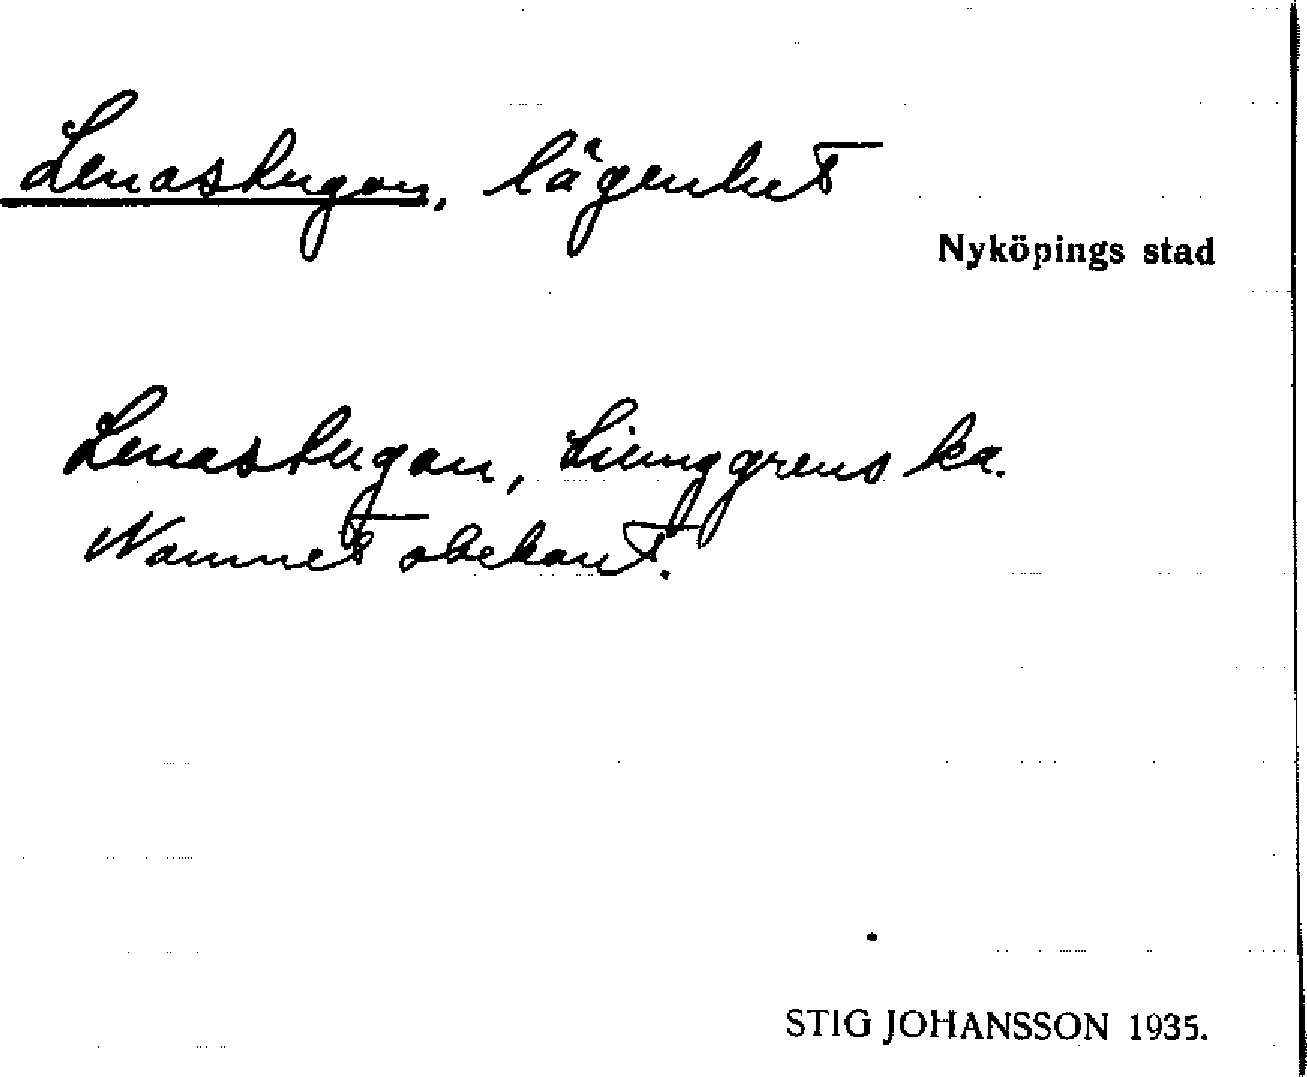 Lenastugan, lägenhet
Nyköpings stad
Lenastugan, Liunggrens ka.
Namnet obekant.
STIG JOHANSSON 1935.